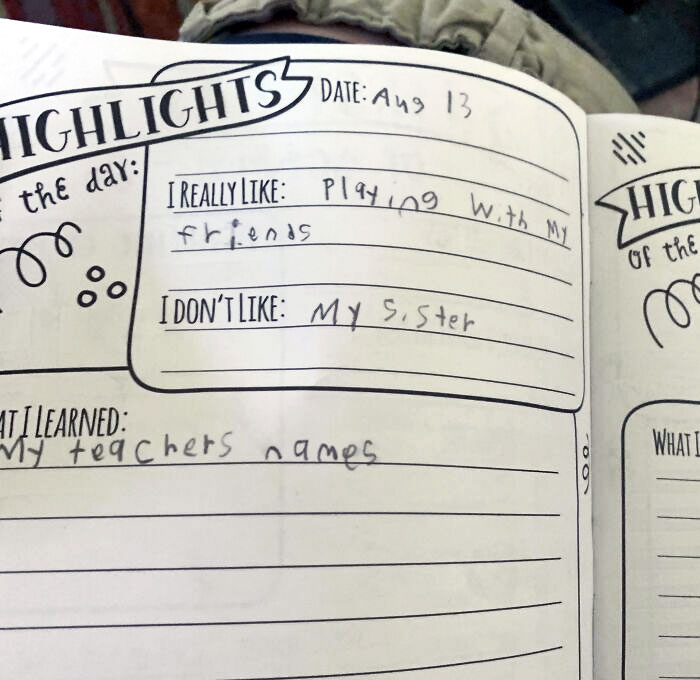 HIGHLIGHTS
DATE: Aug 13
the day:
I REALLY LIKE: Playing With My
friends
I DON'T LIKE: My Sister
AT I LEARNED:
My teachers names
HIG
OF the
WHAT I